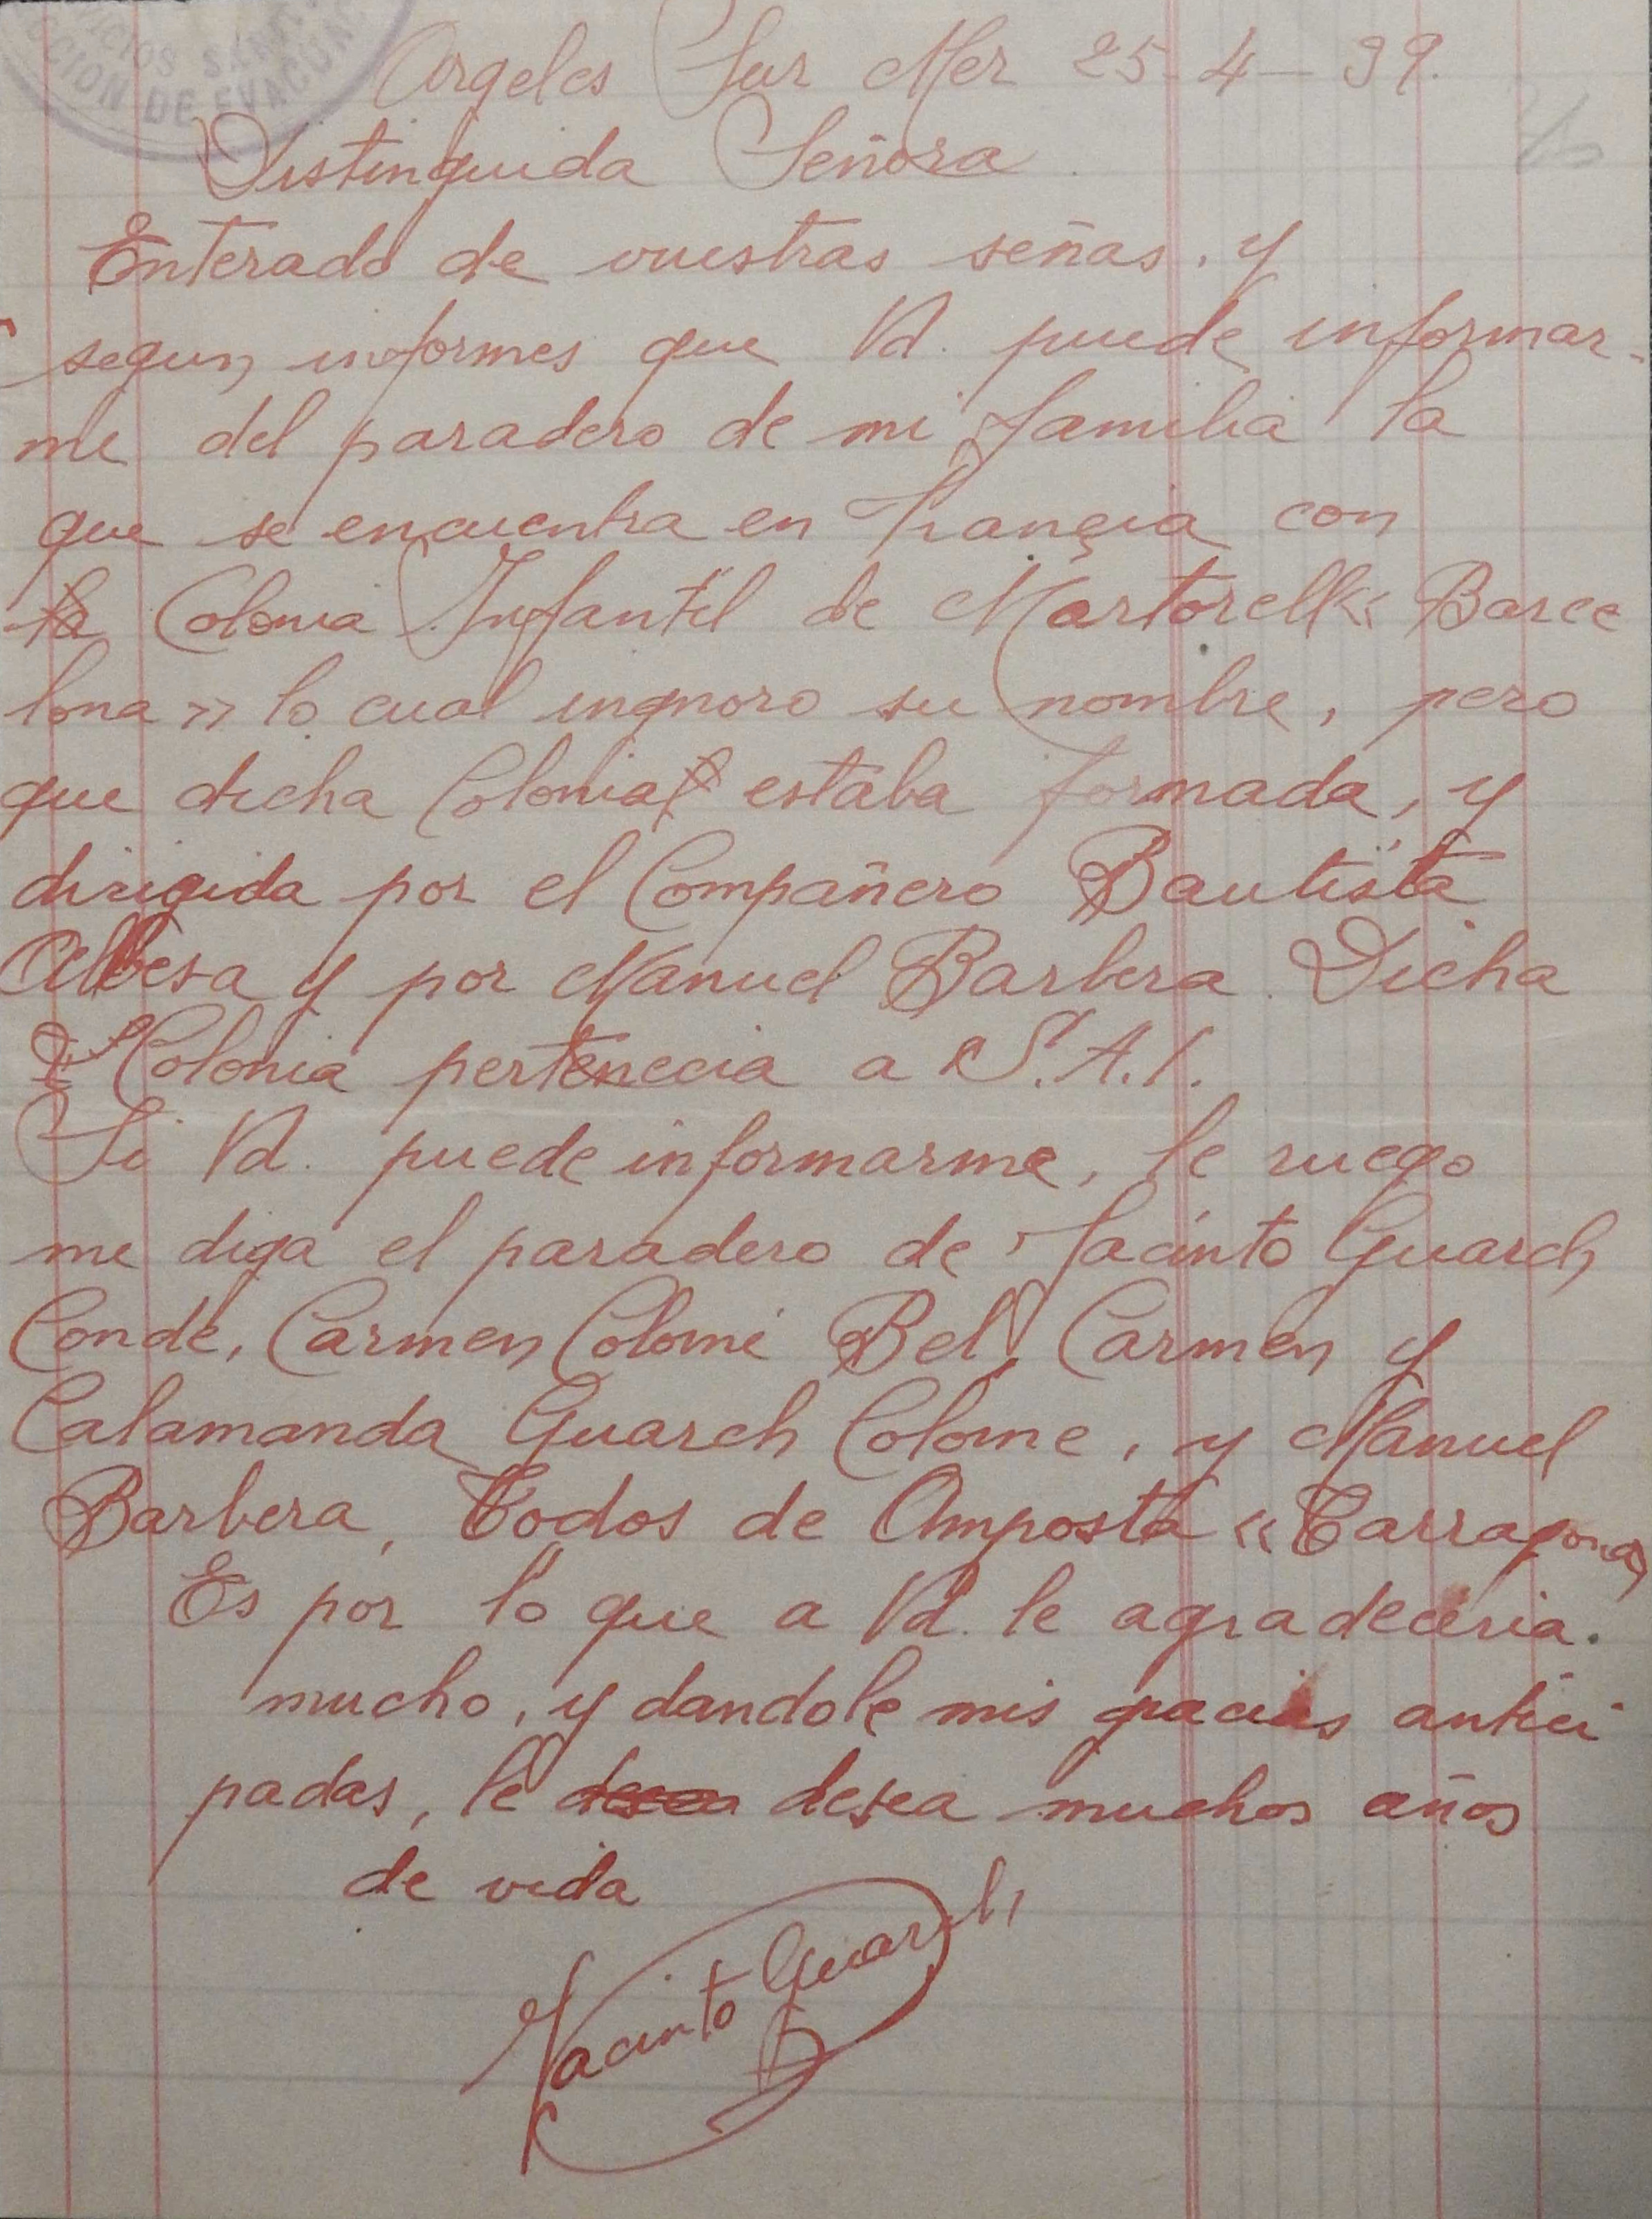 ICIOS SANI
CCION DE EVACUA
Argeles Sur Mer 25-4-39.
Distinguida Señora
Enterado de vuestras señas, y
segun informes que Vd. puede informar-
me del paradero de mi familia la
que se encuentra en Françia con
la Colonia Infantil de Martorell « Barce
lona » lo cual ingnoro su nombre, pero
que dicha Colonia estaba formada, y
dirigida por el Compañero Bautista
Albesa y por Manuel Barbera. Dicha
Colonia pertenecia a S.A.I.
Si Vd. puede informarme, le ruego
me diga el paradero de Jacinto Guarch
Conde, Carmen Colomé Bel, Carmen y
Calamanda Guarch Colome, y Manuel
Barbera, Todos de Amposta « Tarragona »
Es por lo que a Vd. le agradeceria
mucho, y dandole mis gracias antici
padas, le desea muchos años
de vida
Jacinto Guarch